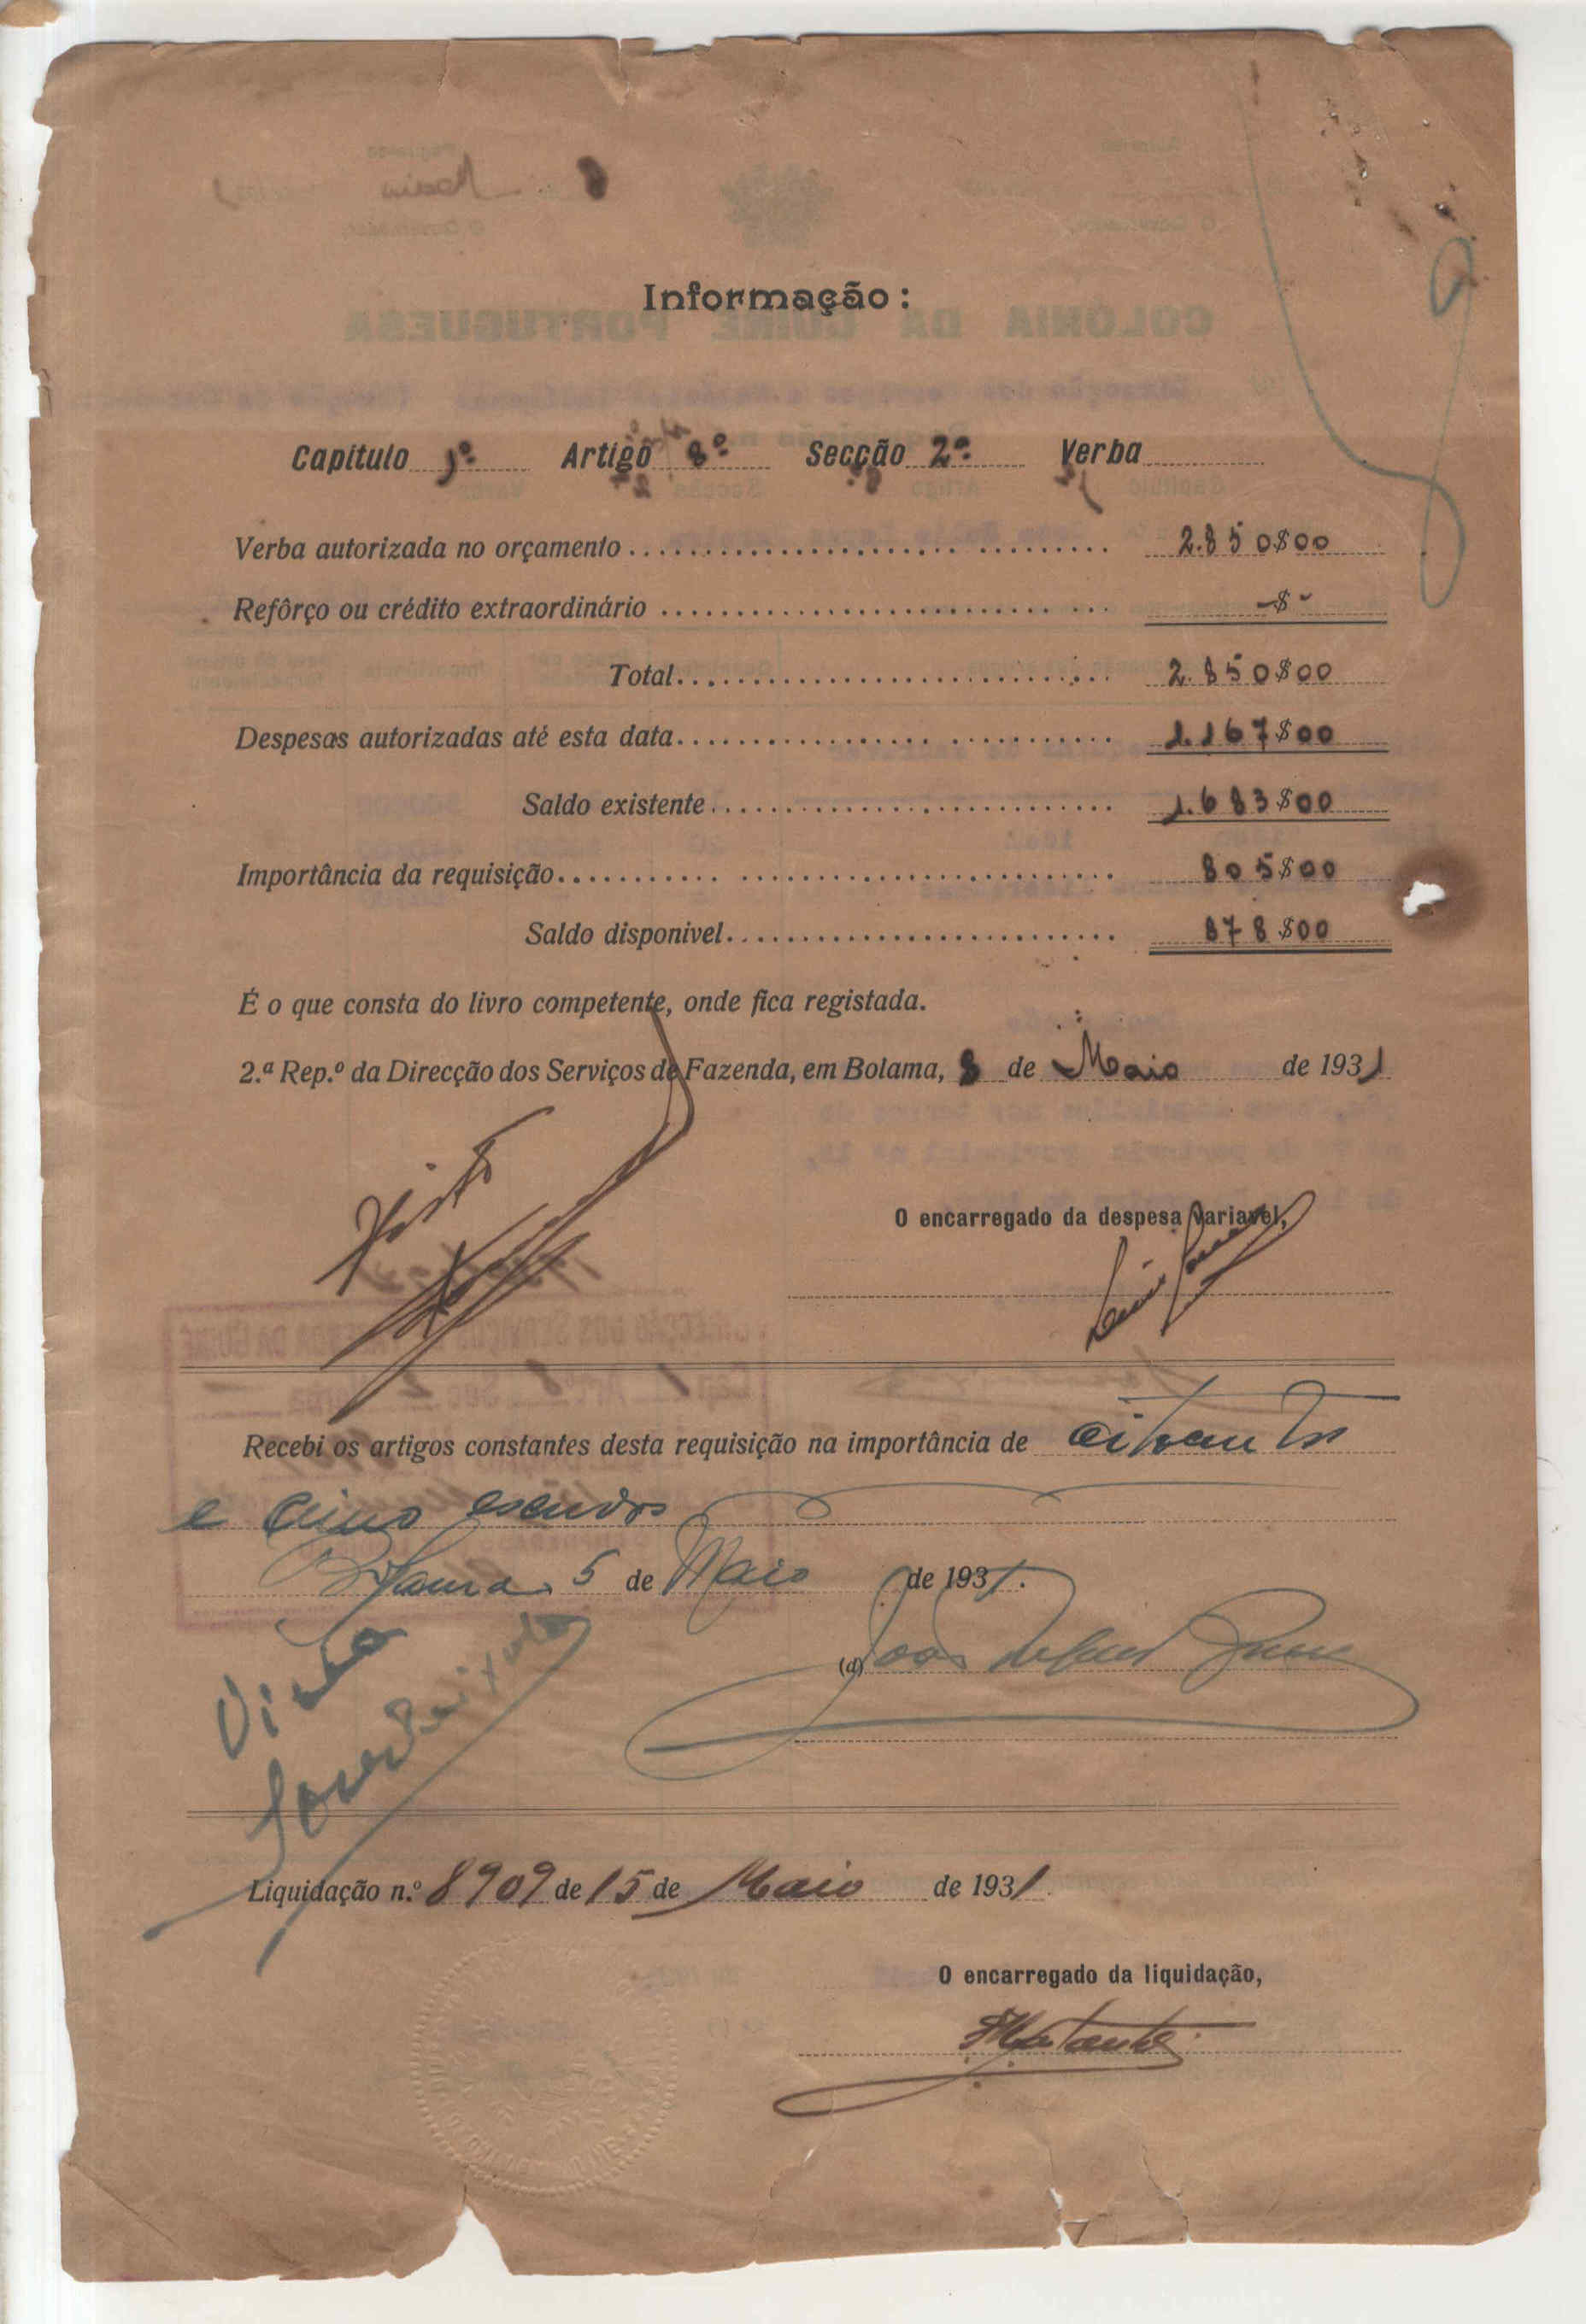 Informação:
Capítulo 1º Artigo 8º Secção 2ª Verba
Verba autorizada no orçamento 2.850$00
Refôrço ou crédito extraordinário -$-
Total 2.850$00
Despesas autorizadas até esta data 1.167$00
Saldo existente 1.683$00
Importância da requisição 805$00
Saldo disponivel 878$00
É o que consta do livro competente, onde fica registada.
2.ª Rep.º da Direcção dos Serviços de Fazenda, em Bolama, 8 de Maio de 1931
Visto
O encarregado da despesa variavel,
Recebi os artigos constantes desta requisição na importância de oitocentos
e cinco escudos
Bolama 5 de Maio de 1931.
Visto
(d) João
Liquidação n.º 8909 de 15 de Maio de 1931
O encarregado da liquidação,